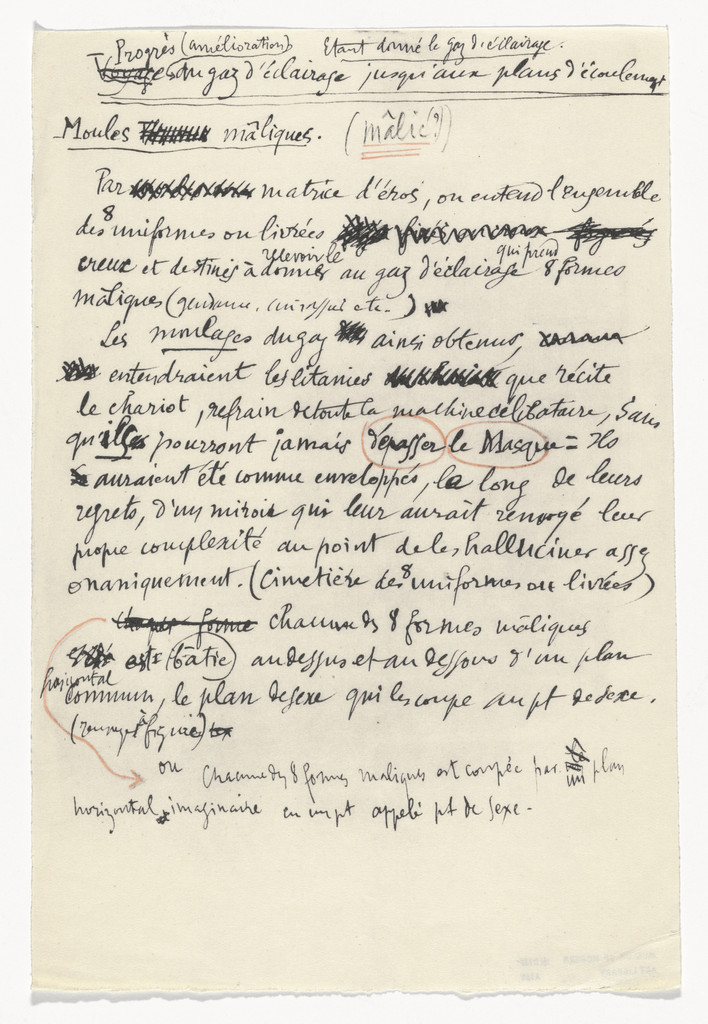 Progrès (amélioration) Etant donné le gaz d'éclairage.
Voyage du gaz d'éclairage jusqu'aux plans d'écoulement
Moules mâliques. (mâlic?)
Par matrice d'éros, on entend l'ensemble
des 8 uniformes ou livrées
recevoir le qui prend
creux et destinés à donner au gaz d'éclairage 8 formes
mâliques (gendarme, cuirassier etc.)
Les moulages du gaz ainsi obtenus,
entendraient les litanies que récite
le chariot, refrain de toute la machine célibataire, Sans
qu'ils pourront jamais dépasser le Masque = Ils
auraient été comme enveloppés, le long de leurs
regrets, d'un miroir qui leur aurait renvoyé leur
propre complexité au point de les halluciner assez
onaniquement. (Cimetière des 8 uniformes ou livrées)
Chaque forme chacune des 8 formes mâliques
est bâtie au dessus et au dessous d'un plan
horizontal
commun, le plan de sexe qui les coupe au pt de sexe.
(renvoyer à figure)
ou Chacune des 8 formes maliques est coupée par un plan
horizontal imaginaire en un pt appelé pt de sexe.